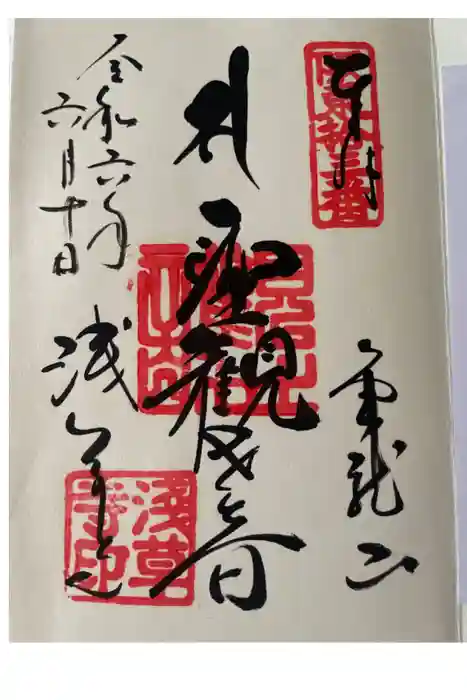 奉拝
坂東拾三番
金龍山
聖観世音
令和六年
六月十日
浅草寺
浅草
寺印